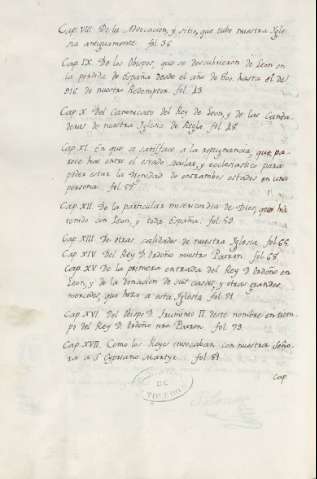 Cap. VIII. De la Advocacion, y sitio, que tubo nuestra Igle
sia antiguamente. fol. 36
Cap. IX. De los Obispos, que se descubrieron de Leon en
la perdida de España desde el año de 800. hasta el de
916. de nuestra Redempcion. fol.
Cap. X. Del Canonicato del Rey de Leon, y de las Canda
denas de nuestra Iglesia de Regla. fol. 48.
Cap. XI. En que se satisface a la repugnancia, que pa-
rece hai entre el estado secular, y ecclesiastico para
poder estar la Dignidad de entrambos estados en una
persona. fol.
Cap. XII. De la particular misericordia de Dios, que ha
tenido con Leon, y toda España. fol. 59.
Cap. XIII. De otras calidades de nuestra Iglesia. fol. 66.
Cap. XIV. Del Rey D. Ordoño nuestro Patron. fol. 68.
Cap. XV. De la primera entrada del Rey D. Ordoño en
Leon, y de la donacion de sus casas, y otras grandes
mercedes, que hizo a esta Iglesia. fol. 71.
Cap. XVI. Del Obispo D. Frunimio II. deste nombre en tiem-
po del Rey D. Ordoño nro Patron. fol. 79.
Cap. XVII. Como los Reyes invocaban con nuestra Seño-
ra a Sn. Cypriano Martyr. fol. 81.
Cap.
DE
TOLEDO